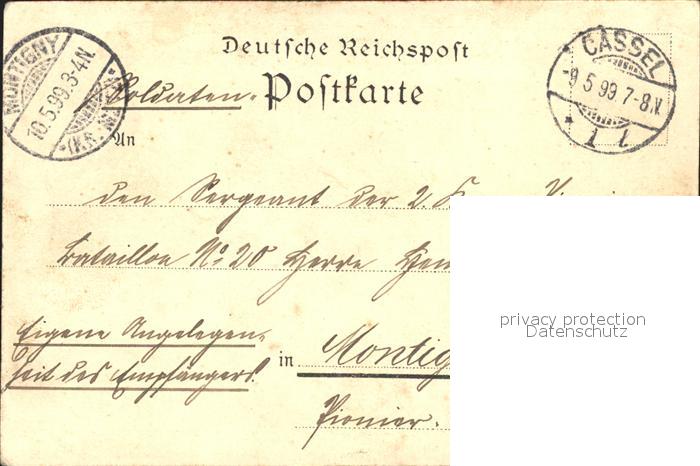 Deutsche Reichspost
Soldaten- Postkarte
MONTIGNY
10.5.99.3-4N.
CASSEL
9.5.99.7-8.V.
1
An
den Sergeant der 2. K
Bataillon No 20 Herrn
Eigene Angelegen-
heit des Empfängers.
in Montig
Pionier.
privacy protection
Datenschutz